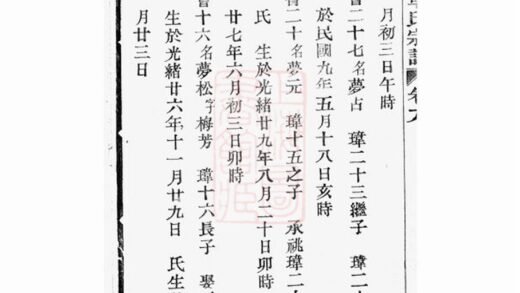 氏宗譜 卷
月初三日午時
二十七名夢占 瑋二十三繼子 瑋二
於民國九年五月十八日亥時
二十名夢元 瑋十五之子 承祧瑋二
氏 生於光緒廿九年八月二十日卯時
廿七年六月初三日卯時
十六名夢松字梅芳 瑋十六長子 娶
生於光緒廿六年十一月廿九日 氏生
月廿三日